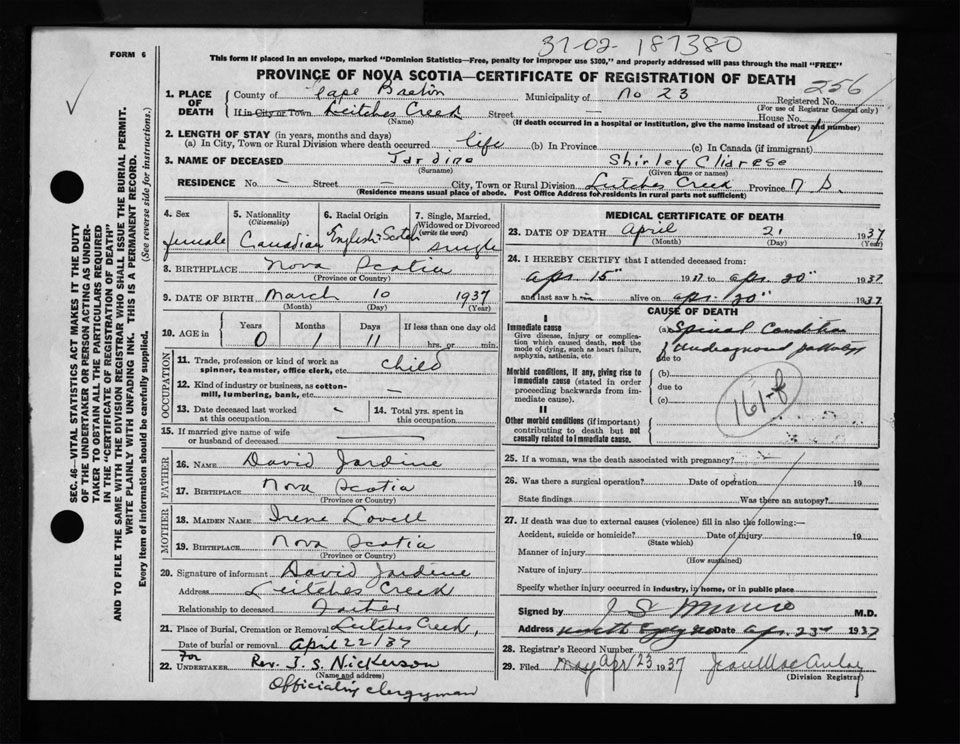 FORM 6
37-02- 187380
This form if placed in an envelope, marked "Dominion Statistics—Free, penalty for improper use $300," and properly addressed will pass through the mail "FREE"
PROVINCE OF NOVA SCOTIA—CERTIFICATE OF REGISTRATION OF DEATH
256
1. PLACE OF DEATH
County of Cape Breton Municipality of No 23 Registered No.
(For use of Registrar General only)
If in City or Town Leitches Creek Street — House No.
(Name) (If death occurred in a hospital or institution, give the name instead of street and number)
2. LENGTH OF STAY (in years, months and days)
(a) In City, Town or Rural Division where death occurred life (b) In Province (c) In Canada (if immigrant)
3. NAME OF DECEASED Jardine Shirley Clarese
(Surname) (Given name or names)
RESIDENCE No — Street — City, Town or Rural Division Leitches Creek Province N S
(Residence means usual place of abode. Post Office Address for residents in rural parts not sufficient)
SEC. 46—VITAL STATISTICS ACT MAKES IT THE DUTY
OF THE UNDERTAKER OR PERSON ACTING AS UNDER-
TAKER TO OBTAIN ALL THE PARTICULARS REQUIRED
IN THE "CERTIFICATE OF REGISTRATION OF DEATH"
AND TO FILE THE SAME WITH THE DIVISION REGISTRAR WHO SHALL ISSUE THE BURIAL PERMIT.
WRITE PLAINLY WITH UNFADING INK. THIS IS A PERMANENT RECORD.
Every item of information should be carefully supplied. (See reverse side for instructions.)
4. Sex
female
5. Nationality
(Citizenship)
Canadian
6. Racial Origin
English Scotch
7. Single, Married,
Widowed or Divorced
(write the word)
single
8. BIRTHPLACE Nova Scotia
(Province or Country)
9. DATE OF BIRTH March 10 1937
(Month) (Day) (Year)
10. AGE in Years Months Days If less than one day old
0 1 11 hrs. or min.
OCCUPATION
11. Trade, profession or kind of work as
spinner, teamster, office clerk, etc. Child
12. Kind of industry or business, as cotton-
mill, lumbering, bank, etc. —
13. Date deceased last worked
at this occupation -
14. Total yrs. spent in
this occupation
15. If married give name of wife
or husband of deceased —
FATHER
16. NAME David Jardine
17. BIRTHPLACE Nova Scotia
(Province or Country)
MOTHER
18. MAIDEN NAME Irene Lovell
19. BIRTHPLACE Nova Scotia
(Province or Country)
20. Signature of informant David Jardine
Address Leitches Creek
Relationship to deceased Father
21. Place of Burial, Cremation or Removal Leitches Creek,
Date of burial or removal April 22/37
For
22. UNDERTAKER Rev. J. S. Nickerson
(Name and address)
Officiating clergyman
MEDICAL CERTIFICATE OF DEATH
23. DATE OF DEATH April 21 1937
(Month) (Day) (Year)
24. I HEREBY CERTIFY that I attended deceased from:
apr 15" 1937 to apr 20" 1937
and last saw him alive on apr. 20" 1937
CAUSE OF DEATH
I
Immediate cause
Give disease, injury or complica-
tion which caused death, not the
mode of dying, such as heart failure,
asphyxia, asthenia, etc
(a) Spinal Condition
due to
Morbid conditions, if any, giving rise to
immediate cause (stated in order
proceeding backwards from im-
mediate cause).
(b)
due to
(c)
161-f
II
Other morbid conditions (if important)
contributing to death but not
causally related to immediate cause.
25. If a woman, was the death associated with pregnancy?
26. Was there a surgical operation? Date of operation 19
State findings Was there an autopsy?
27. If death was due to external causes (violence) fill in also the following:—
Accident, suicide or homicide? Date of Injury 19
(State which)
Manner of injury
(How sustained)
Nature of injury
Specify whether injury occurred in industry, in home, or in public place
Signed by M.D.
Address Date apr. 23rd 1937
28. Registrar's Record Number
29. Filed May Apr 23 1937 Jean MacAulay
(Division Registrar)